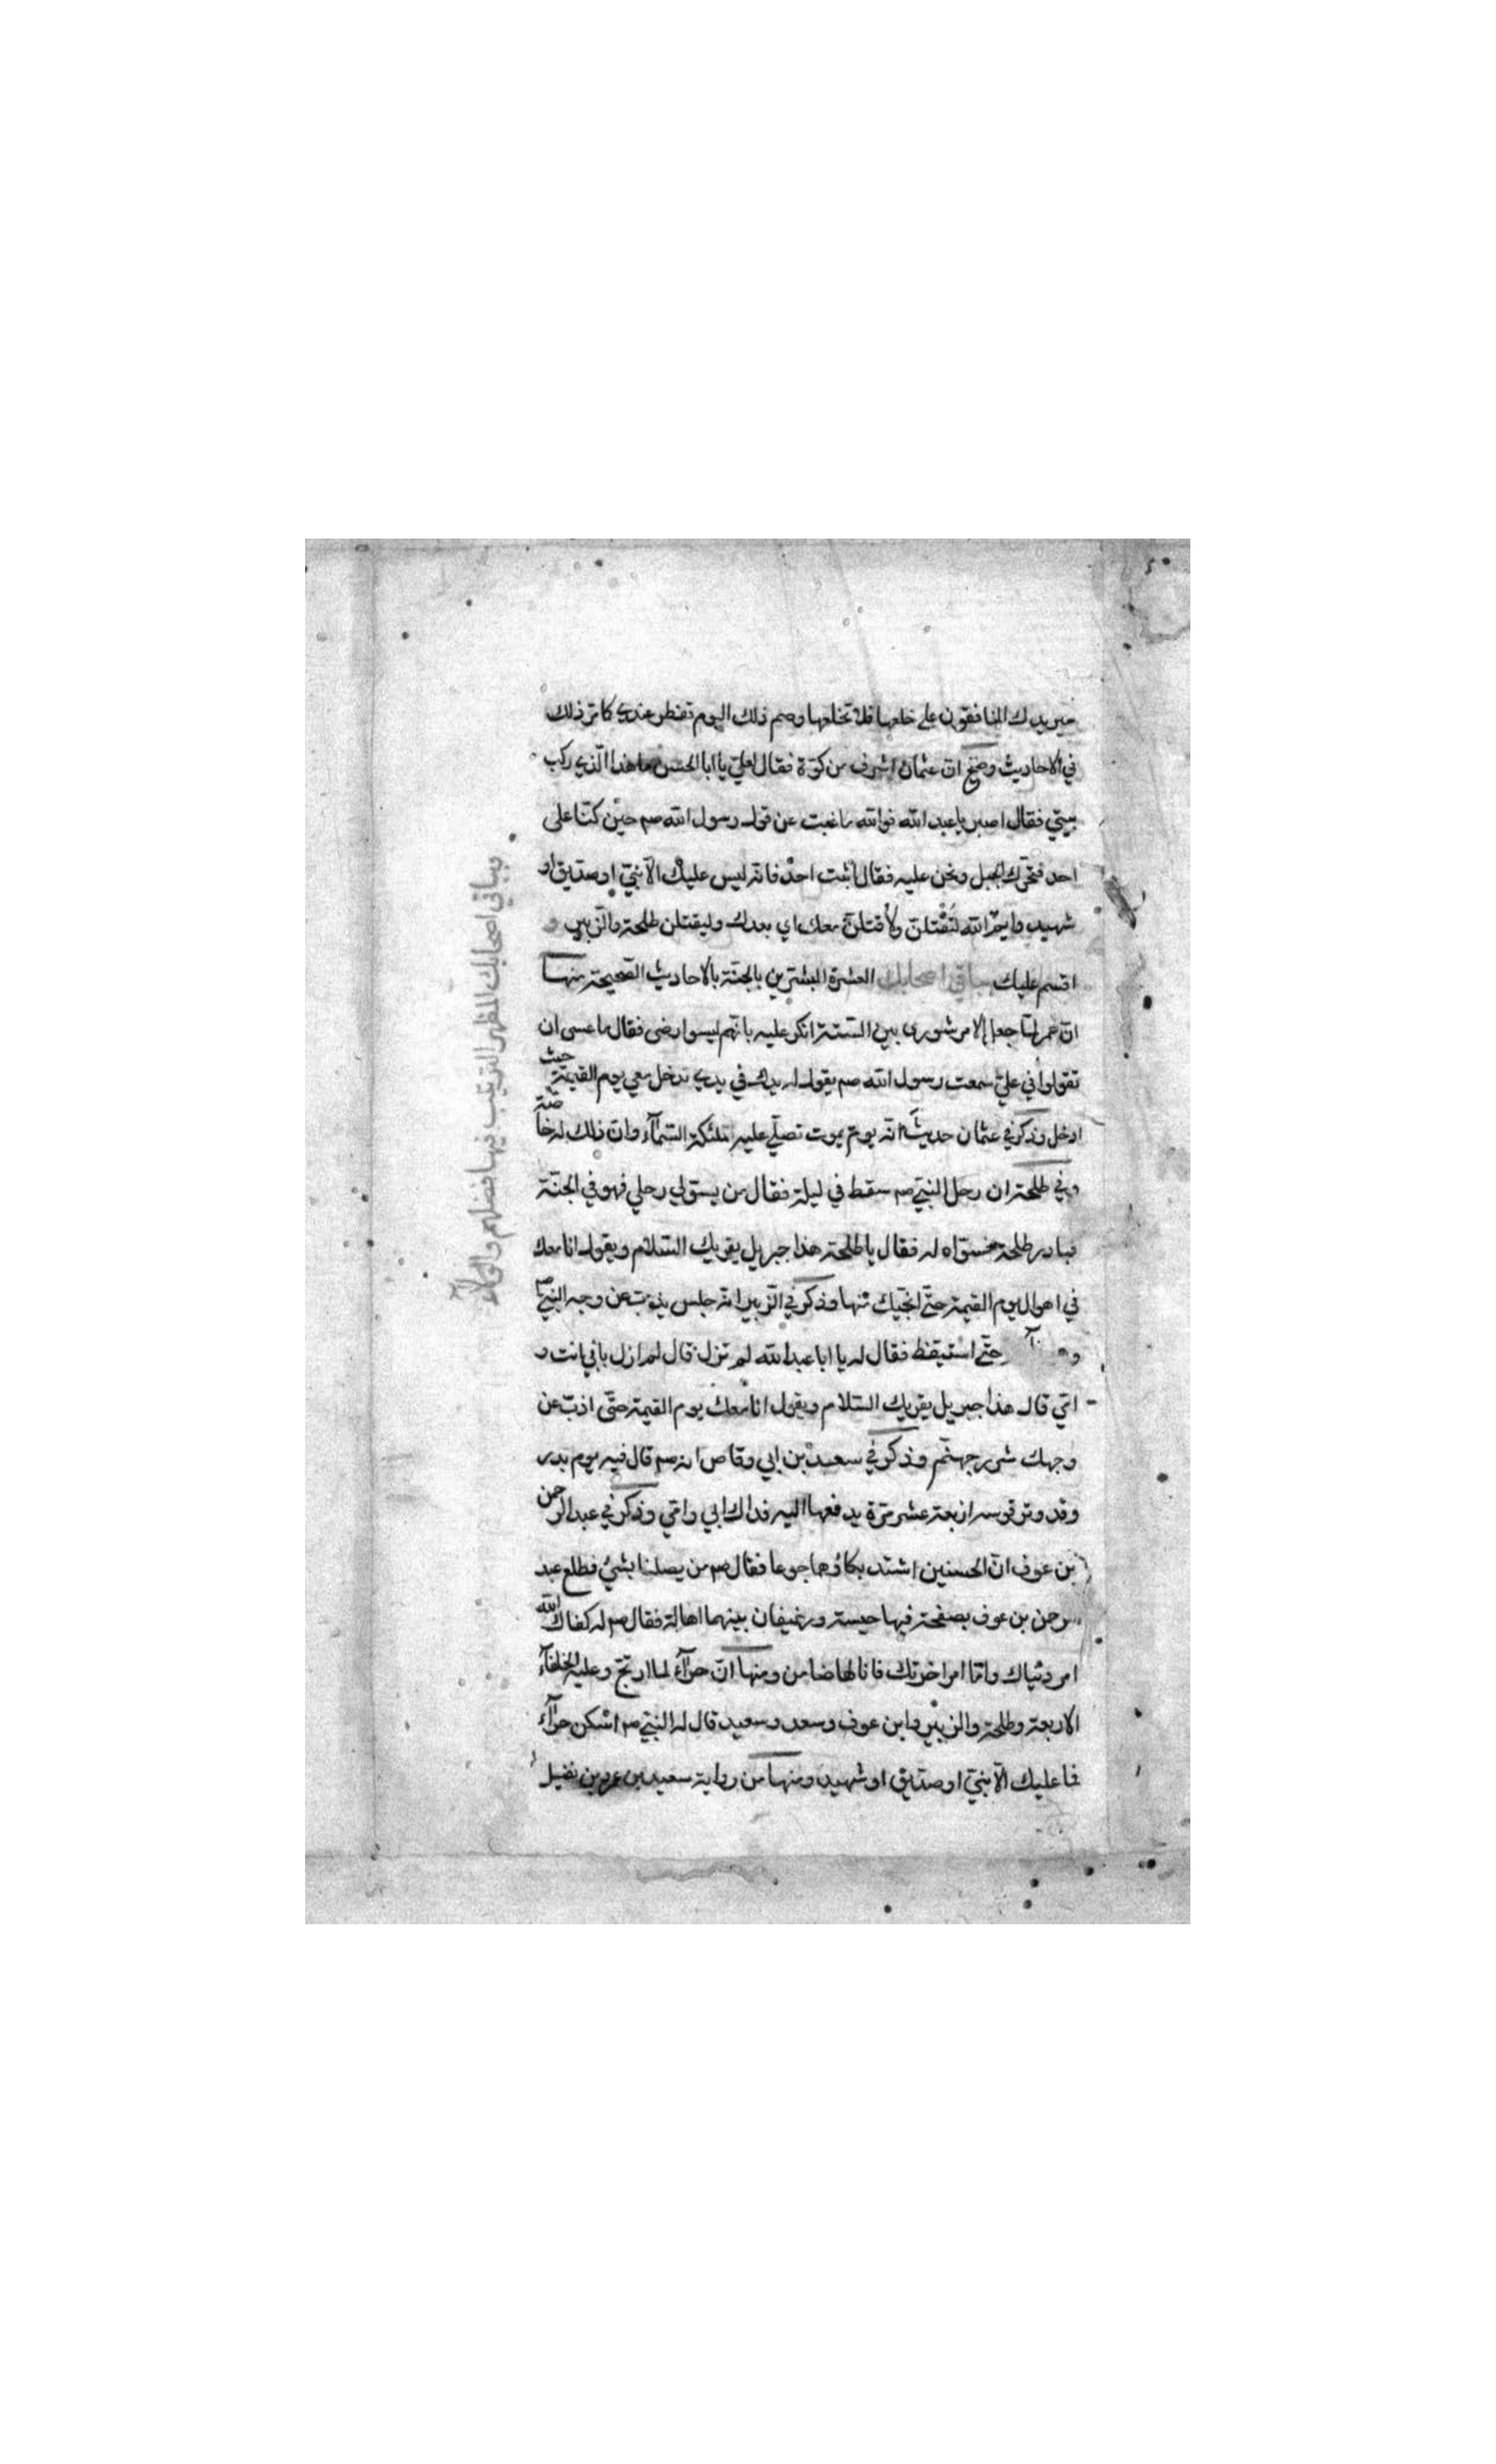 سيريدك المنافقون على خلعها فلا تخلعها وصم ذلك اليوم تفطر عندي كما مر ذلك
في الاحاديث وصح ان عثمان اشرف من كوة فقال لعلي يا ابا الحسن ما هذا الذي ركب
بيتي فقال اصبر يا عبد الله فوالله ما غبت عن قول رسول الله صم حين كنا على
احد فتحرك الجبل ونحن عليه فقال اثبت احد فانه ليس عليك الا نبي او صديق او
شهيد وايم الله لتقتلن ولأقتلن معك اي بعدك وليقتلن طلحة والزبير و
اقسم عليك بباقي اصحابك العشرة المبشرين بالجنة بالاحاديث الصحيحة منها
ان عمر لما جعل الامر شورى بين الستة انكر عليه بانهم ليسوا رضى فقال ما عسى ان
تقولوا في علي سمعت رسول الله صم يقول له يدك في يدي تدخل معي يوم القيمة حيث
ادخل وذكر في عثمان حديث انه يوم يموت تصلي عليه ملئكة السمآء وان ذلك له خاصة
وفي طلحة ان رحل النبي صم سقط في ليلة فقال من يسوي لي رحلي فهو في الجنة
فبادر طلحة فسواه له فقال يا طلحة هذا جبريل يقريك السلام ويقول انا معك
في اهوال يوم القيمة حتى انجيك منها وذكر في الزبير انه جلس يذب عن وجه النبي صم
حتى استيقظ فقال له يا ابا عبد الله لم تزل قال لم ازل بابي انت و
امي قال هذا جبريل يقريك السلام ويقول انا معك يوم القيمة حتى اذب عن
وجهك شرر جهنم وذكر في سعد بن ابي وقاص انه صم قال فيه يوم بدر
وقد وتر قوسه اربعة عشر مرة يدفعها اليه فداك ابي وامي وذكر في عبد الرحمن
بن عوف ان الحسنين اشتد بكاؤهما جوعا فقال صم من يصلنا بشئ فطلع عبد
الرحمن بن عوف بصفحة فيها حيسة ورغيفان بينهما اهالة فقال صم له كفاك الله
امر دنياك واما امر اخرتك فانا لها ضامن ومنها ان حرآء لما ارتج وعليه الخلفآء
الاربعة وطلحة والزبير وابن عوف وسعد وسعيد قال له النبي صم اسكن حرآء
فما عليك الا نبي او صديق او شهيد ومنها من رواية سعيد بن عمرو بن نفيل
بباقي اصحابك المظهر الترتيب فيها فضلهم والولآء